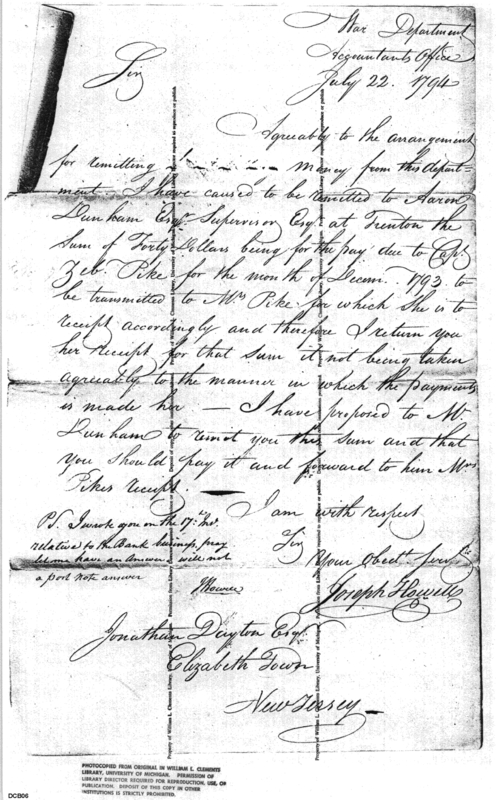 War Department
Accountants Office
July 22. 1794
Sir
Agreably to the arrangement
for remitting money from this depart-
ment I have caused to be remitted to Aaron
Dunham Esqr. Supervisor Esq at Trenton the
Sum of Forty Dollars being for the pay due to Capt.
Zeb. Pike for the month of Decem. 1793 to
be transmitted to Mrs Pike for which She is to
receipt accordingly and therefore I return you
her receipt for that sum it not being taken
agreably to the manner in which the payments
is made her — I have proposed to Mr
Dunham to remit you this sum and that
you should pay it and forward to him Mrs
Pikes receipt. —
I am with respect
Sir
Your Obedt. Serv
Joseph Howell
PS. I wrote you on the 17th. Inst.
relative to the Bank business, pray
let me have an answer, will not
a post note answer
JHowell
Jonathan Dayton Esqr.
Elizabeth Town
New Jersey —
Property of William L. Clements Library, University of Michigan. Permission from Library Director required to reproduce or publish
PHOTOCOPIED FROM ORIGINAL IN WILLIAM L. CLEMENTS
LIBRARY, UNIVERSITY OF MICHIGAN. PERMISSION OF
LIBRARY DIRECTOR REQUIRED FOR REPRODUCTION, USE, OR
PUBLICATION. DEPOSIT OF THIS COPY IN OTHER
INSTITUTIONS IS STRICTLY PROHIBITED.
DCB06